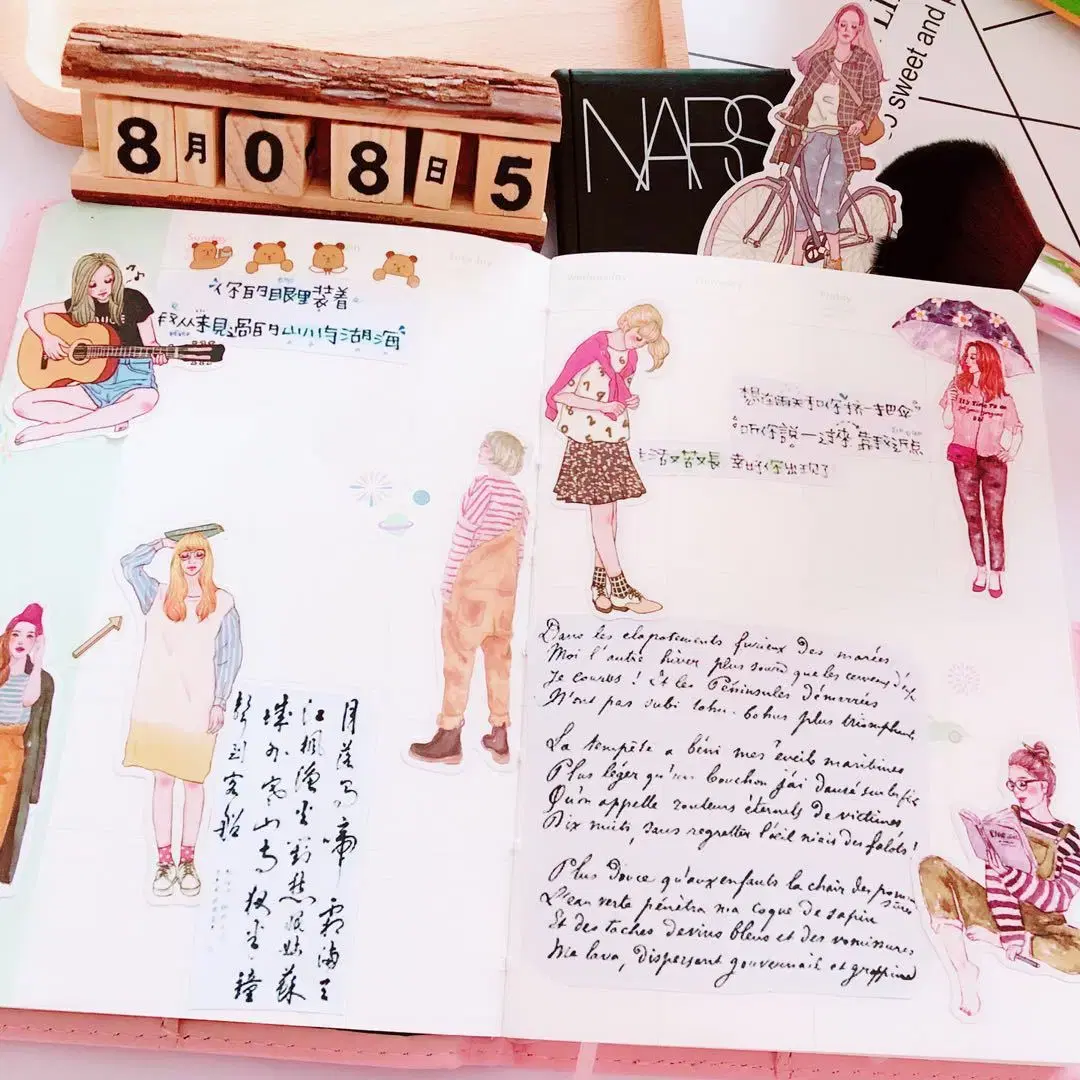 8月08日5
NARS
sweet and
Sunday
你的眼里装着
我从未見過的山川与湖海
Wednesday
Thursday
Friday
想在雨天和你挤一把伞
听你說一过來 靠我近点
生活又苦又長 幸好你出现了
IT'S TIME TO
月落烏啼 霜滿天
江楓漁火對愁眠姑蘇
城外寒山寺夜半鐘
聲到客船
Dans les clapotements furieux des marées
Moi l'autre hiver plus sourd que les cerveaux d'enf
Je courus ! Et les Péninsules démarrées
N'ont pas subi tohu-bohus plus triomphants
La tempête a béni mes éveils maritimes
Plus léger qu'un bouchon j'ai dansé sur les flots
Qu'on appelle rouleurs éternels de victimes,
Dix nuits, sans regretter l'œil niais des falots !
Plus douce qu'aux enfants la chair des pommes sûres
L'eau verte pénétra ma coque de sapin
Et des taches de vins bleus et des vomissures
Me lava, dispersant gouvernail et grappin